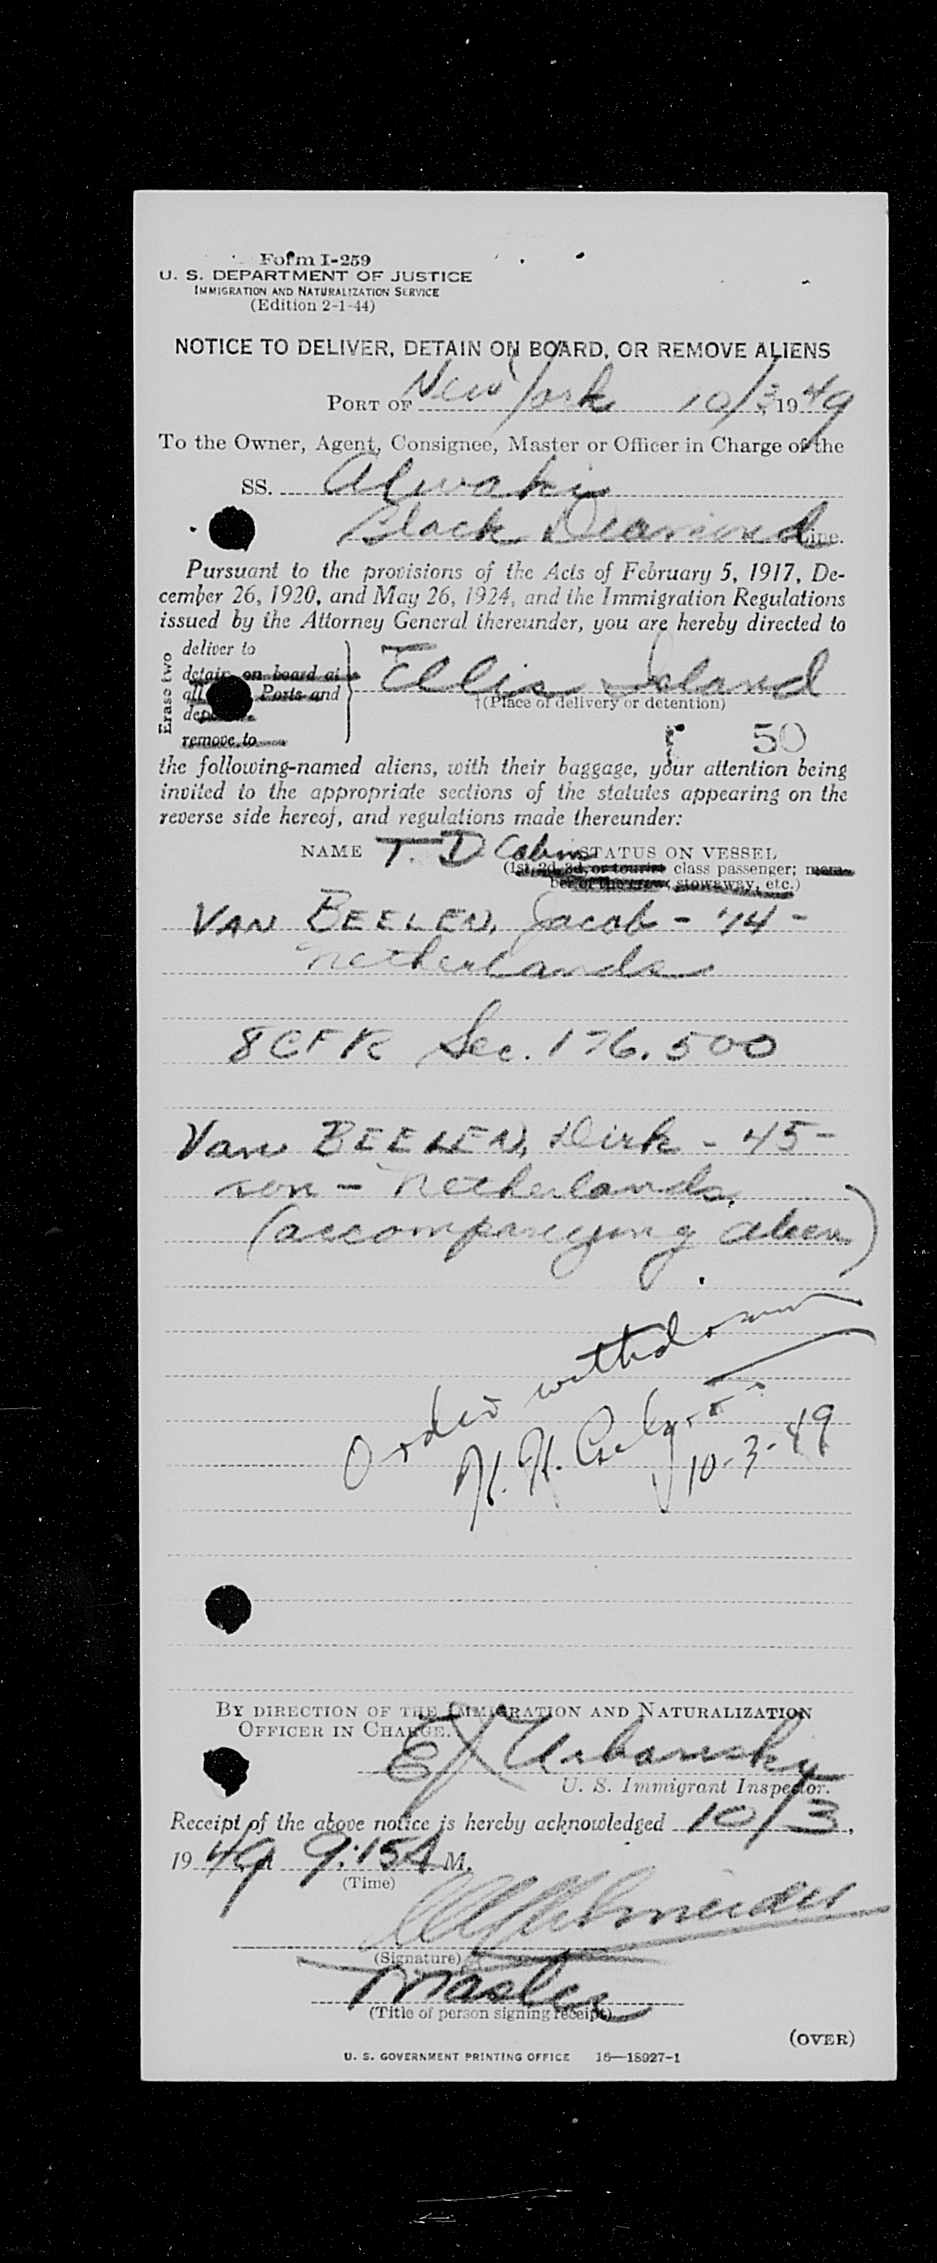 Form I-259
U. S. DEPARTMENT OF JUSTICE
IMMIGRATION AND NATURALIZATION SERVICE
(Edition 2-1-44)
NOTICE TO DELIVER, DETAIN ON BOARD, OR REMOVE ALIENS
PORT OF New York 10/3, 1949
To the Owner, Agent, Consignee, Master or Officer in Charge of the
SS. Alwaki
Black Diamond Line.
Pursuant to the provisions of the Acts of February 5, 1917, De-
cember 26, 1920, and May 26, 1924, and the Immigration Regulations
issued by the Attorney General thereunder, you are hereby directed to
Erase two
deliver to
detain on board at
all Ports and
remove to
Ellis Island
(Place of delivery or detention)
50
the following-named aliens, with their baggage, your attention being
invited to the appropriate sections of the statutes appearing on the
reverse side hereof, and regulations made thereunder:
NAME T. D. Cabin STATUS ON VESSEL
(1st, 2d, 3d, or tourist class passenger; mem-
ber of the crew; stowaway, etc.)
VAN BEELEN, Jacob - 44 -
Netherlands
8 CFR Sec. 176.500
Van BEELEN, Dirk - 45 -
son - Netherlands.
(accompanying alien)
Order withdrawn
H. H. 10-3-49
BY DIRECTION OF THE IMMIGRATION AND NATURALIZATION
OFFICER IN CHARGE.
E J Urbansky
U. S. Immigrant Inspector.
Receipt of the above notice is hereby acknowledged 10/3,
1949 9:15 A M.
(Time)
Schneider
(Signature)
Master
(Title of person signing receipt)
(OVER)
U. S. GOVERNMENT PRINTING OFFICE 16—18927-1